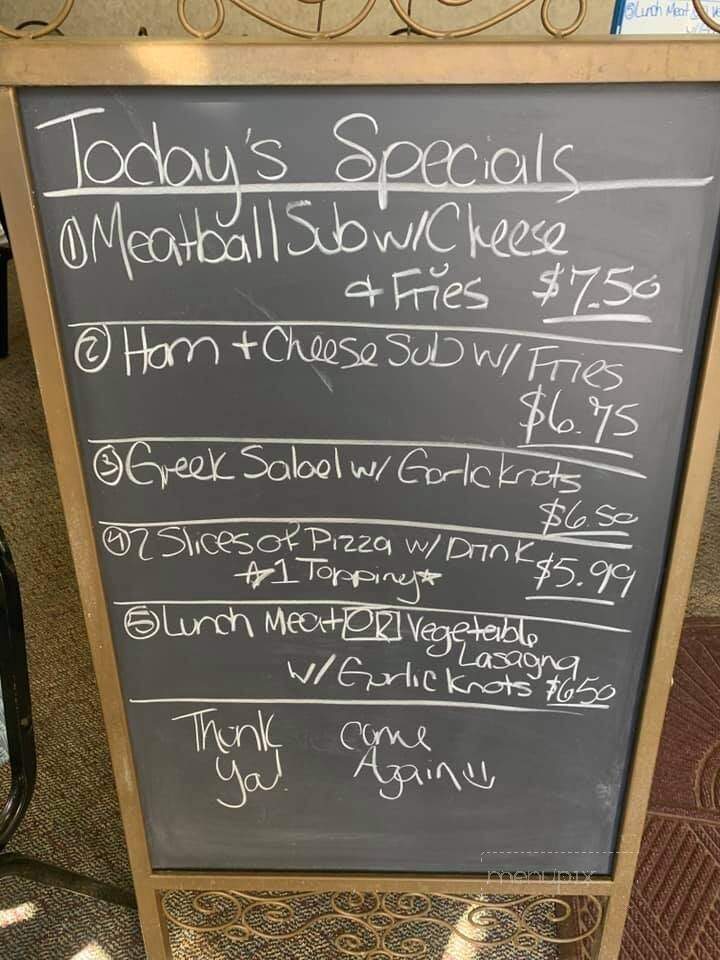 Today's Specials
① Meatball Sub w/Cheese
+ Fries $7.50
② Ham + Cheese Sub w/ Fries
$6.75
③ Greek Salad w/ Garlic knots
$6.50
④ 2 Slices of Pizza w/ Drink
☆1 Topping☆ $5.99
⑤ Lunch Meat OR Vegetable
Lasagna
w/ Garlic knots $6.50
Thank Come
Ya! Again
menupix
⑤Lunch Meat